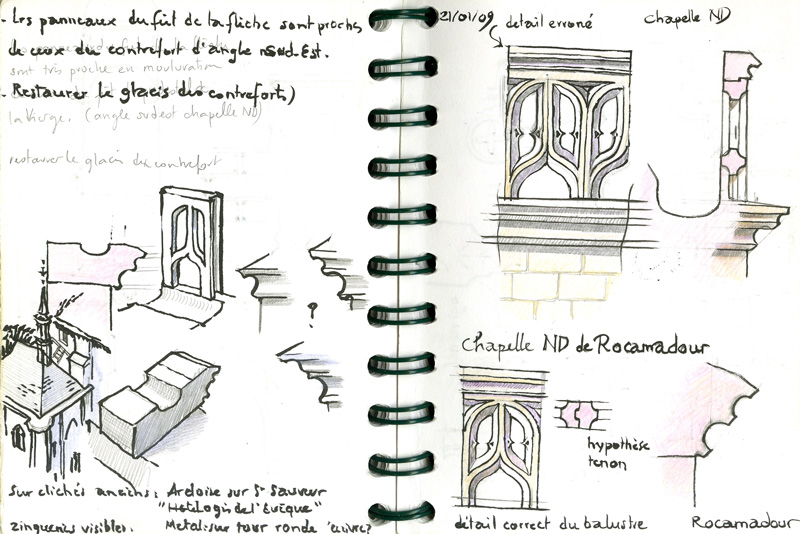 - Les panneaux du fût de la flèche sont proches
de ceux du contrefort d'angle Sud-Est.
sont très proche en mouluration
- Restaurer le glacis du contrefort)
la Vierge. (angle sud est chapelle ND)
restaurer le glacis du contrefort
?
Sur clichés anciens: Ardoise sur St Sauveur
"Hotelogis de l'Evêque"
zingueries visibles. Metal sur tour ronde cuivre?
21/01/09 detail erroné Chapelle ND
Chapelle ND de Rocamadour
hypothèse
tenon
détail correct du balustre Rocamadour